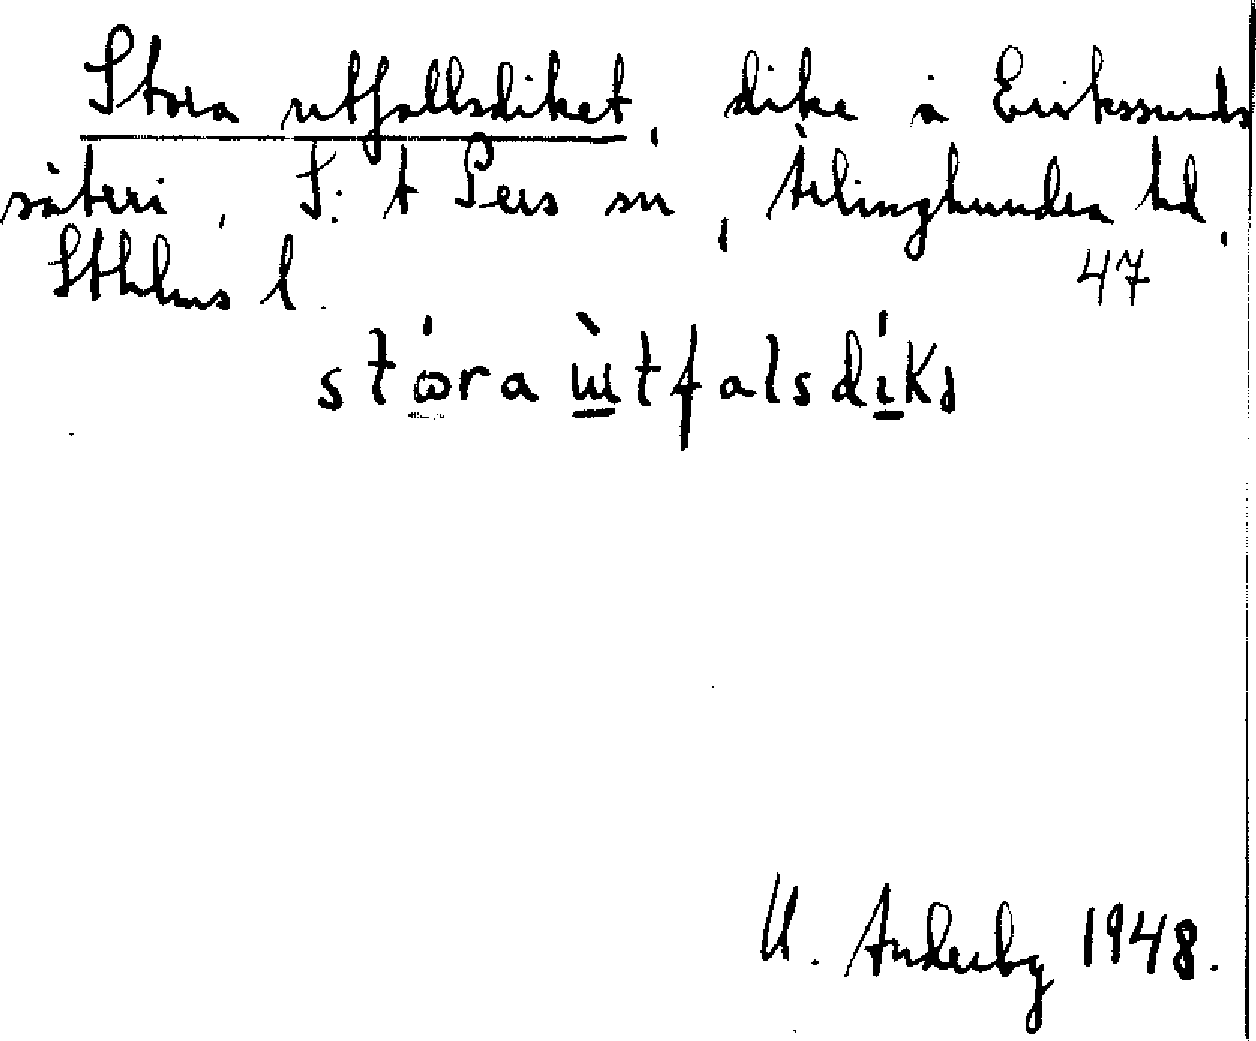 Stora utfallsdiket, dike å Erikssunds
säteri, S:t Pers sn, Ärlinghundra hd,
Sthlms l. 47
stora ùtfalsdíkə
U. Anderby 1948.